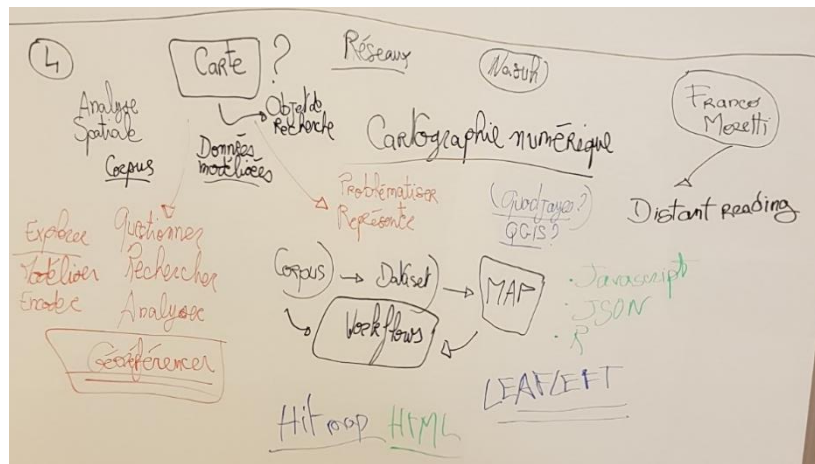 4
Carte ?
Réseaux
Nasuh
Franco
Moretti
Analyse
Spatiale
Corpus
Données
modélisées
Objet de
Recherche
Cartographie numérique
Distant Reading
Problématiser
Représente
QGIS?
Explorer
Modéliser
Encoder
Questionner
Rechercher
Analyser
Géoréférencer
Corpus
Dataset
MAP
Workflows
• Javascript
• JSON
• R
LEAFLEFT
HTML